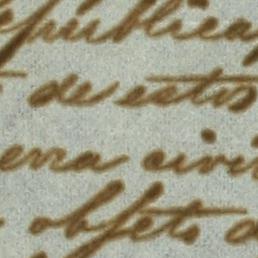 publica
de estos
erra civi
objeto